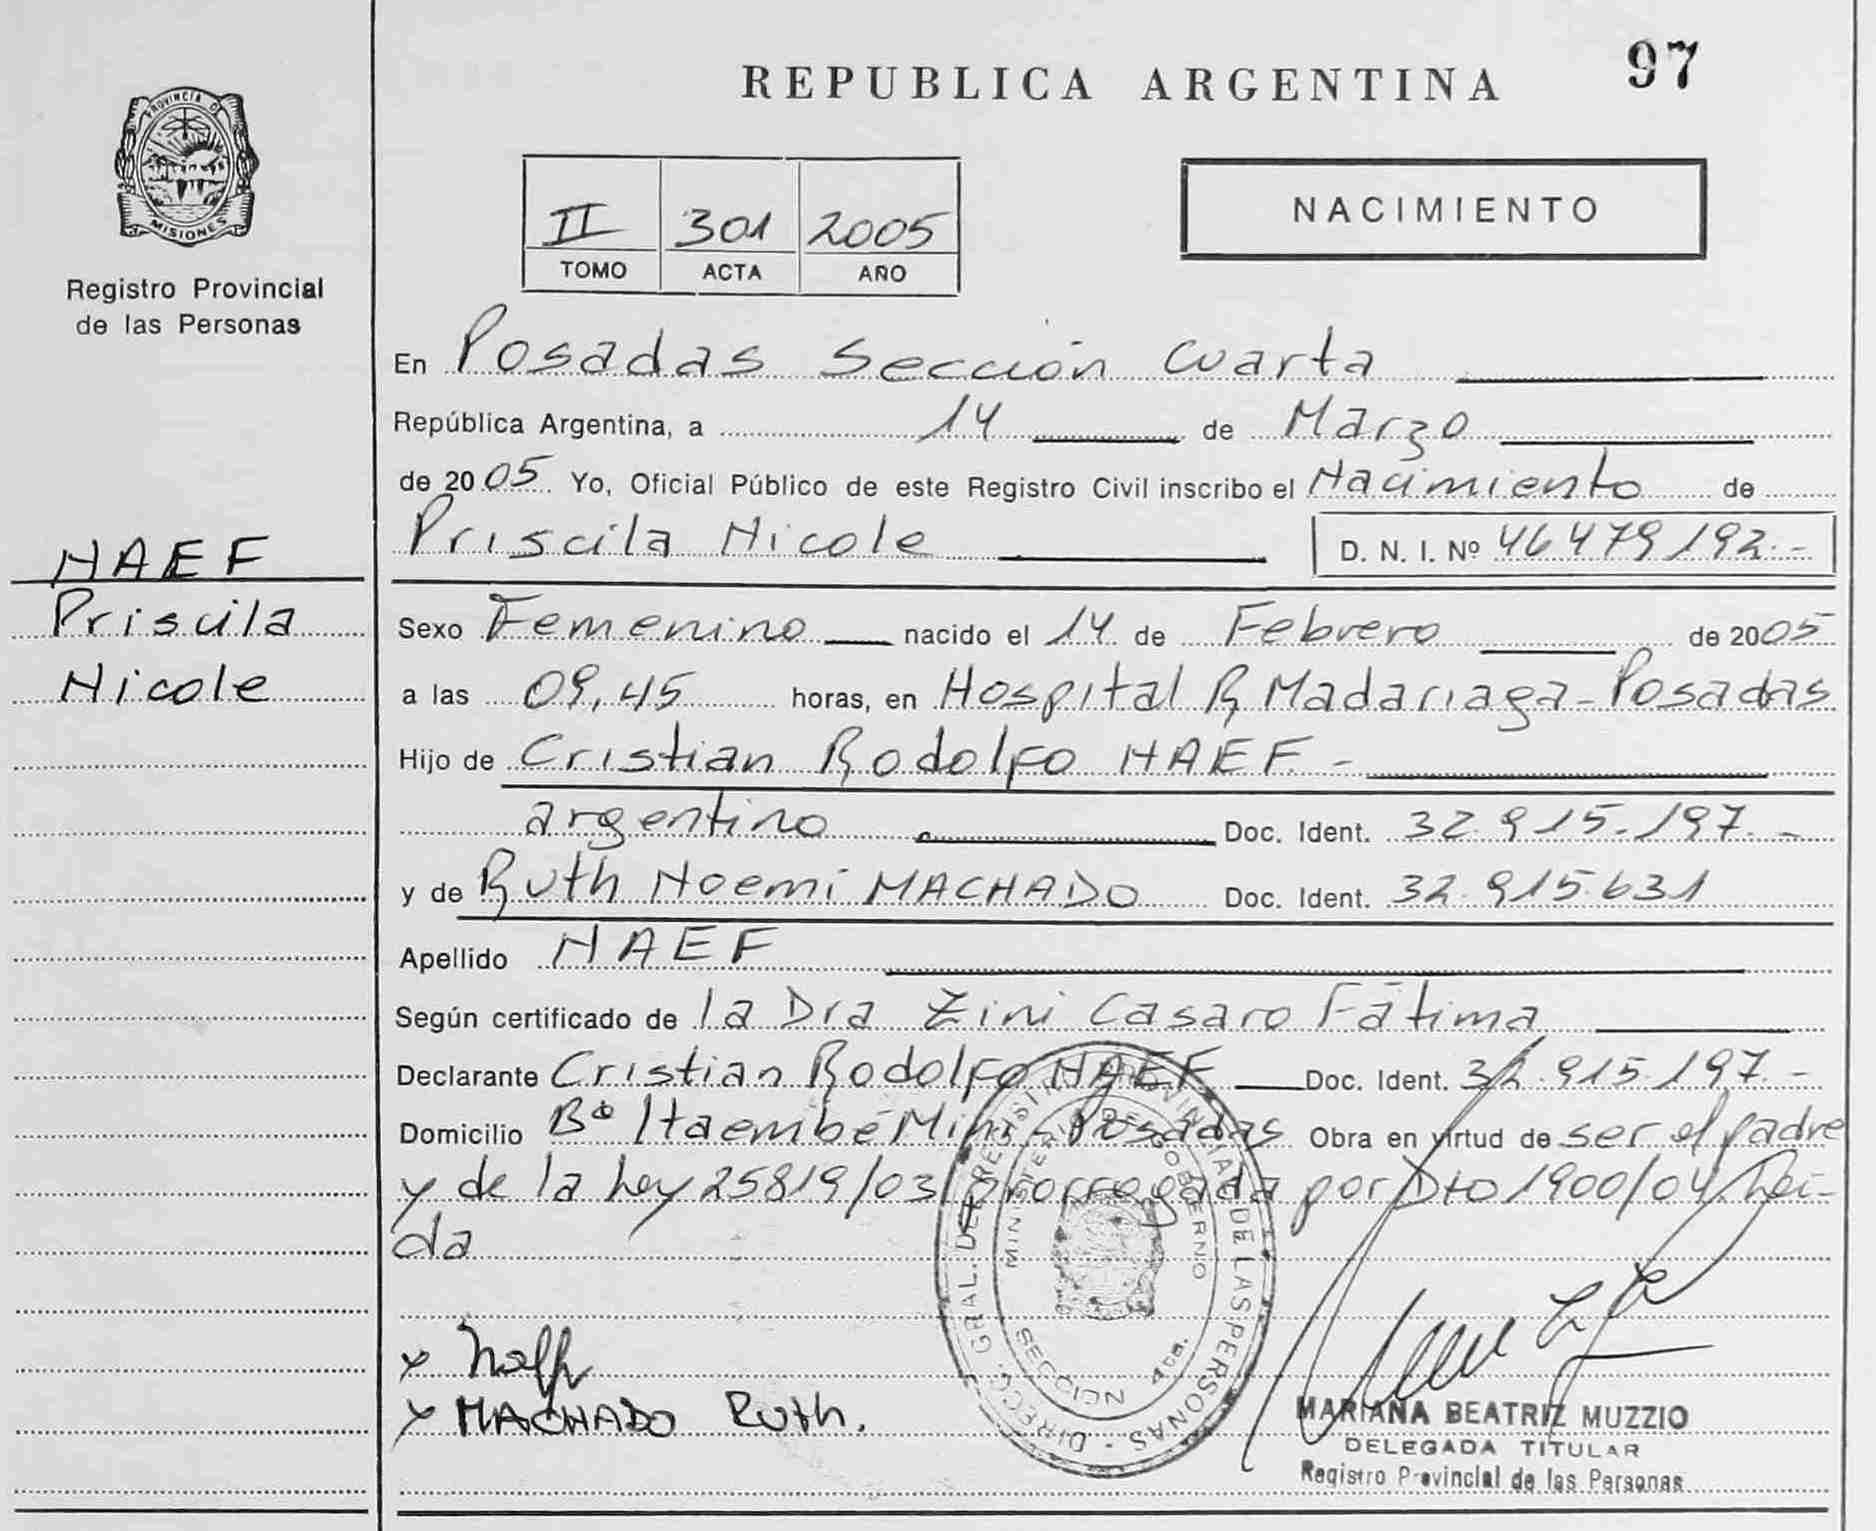 97
REPUBLICA ARGENTINA
PROVINCIA DE
MISIONES
Registro Provincial
de las Personas
II 301 2005
TOMO ACTA AÑO
NACIMIENTO
En Posadas Sección Cuarta
República Argentina, a 14 de Marzo
de 2005 Yo, Oficial Público de este Registro Civil inscribo el Nacimiento de
Priscila Nicole D. N. I. Nº 46479192.-
NAEF
Priscila
Nicole
Sexo Femenino nacido el 14 de Febrero de 2005
a las 09,45 horas, en Hospital R Madariaga-Posadas
Hijo de Cristian Rodolfo NAEF -
argentino Doc. Ident. 32.915.197.-
y de Ruth Noemí MACHADO Doc. Ident. 32.915.631
Apellido NAEF
Según certificado de la Dra Zini Casaro Fátima
Declarante Cristian Rodolfo NAEF Doc. Ident. 32.915.197.-
Domicilio Bº Itaembé Mini - Posadas Obra en virtud de ser el padre
y de la Ley 25819/03 prorrogada por Dto 1900/04 Leí-
da
x
x MACHADO Ruth.
DIRECC. GRAL. DEL REGISTRO PROVINCIAL DE LAS PERSONAS -
MINISTERIO DE GOBIERNO
SECCION 4ta.
MARIANA BEATRIZ MUZZIO
DELEGADA TITULAR
Registro Provincial de las Personas